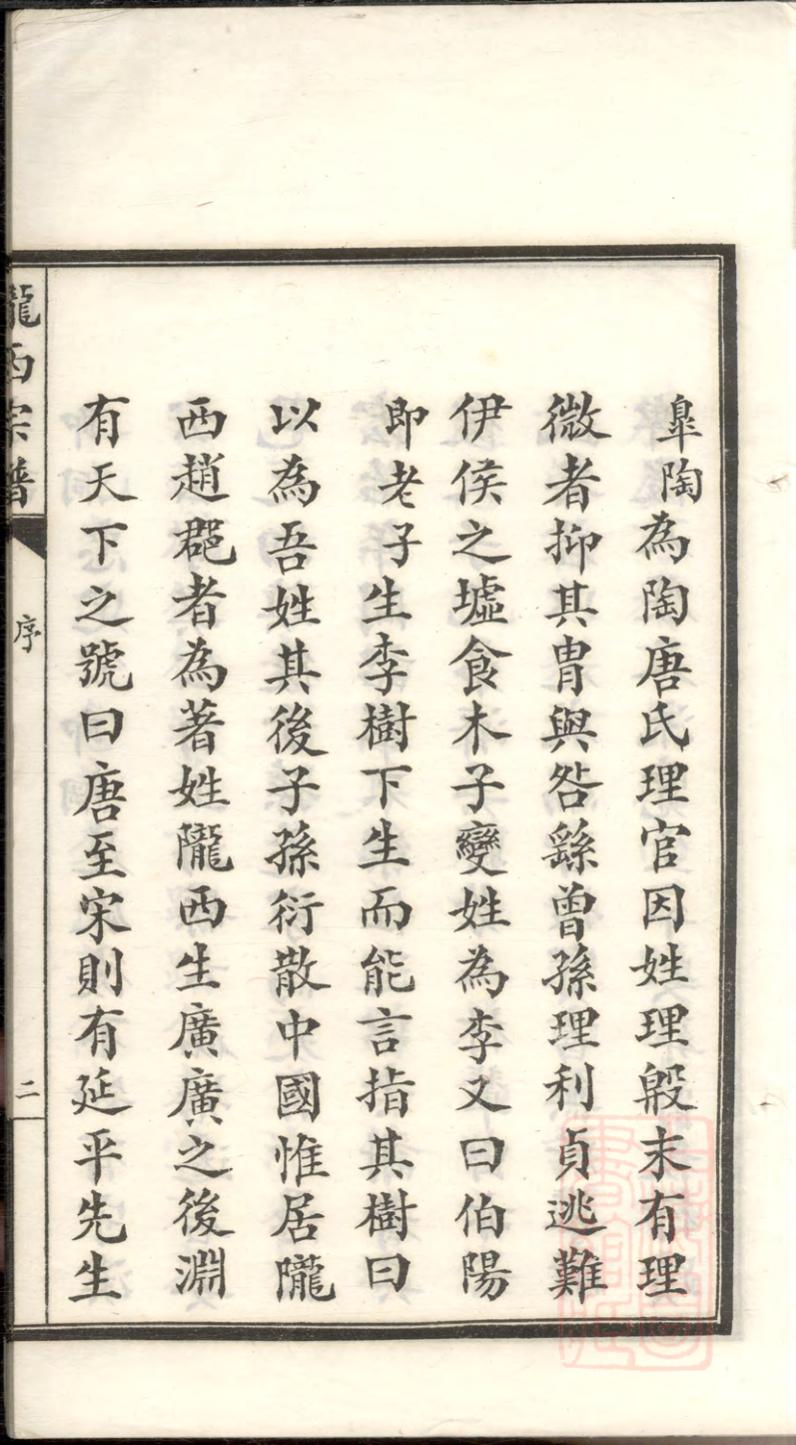 皐陶為陶唐氏理官因姓理殷末有理
微者抑其胄與咎繇曾孫理利貞逃難
伊侯之墟食木子變姓為李又曰伯陽
即老子生李樹下生而能言指其樹曰
以為吾姓其後子孫衍散中國惟居隴
西趙郡者為著姓隴西生廣廣之後淵
有天下之號曰唐至宋則有延平先生
隴西宗譜
序
二